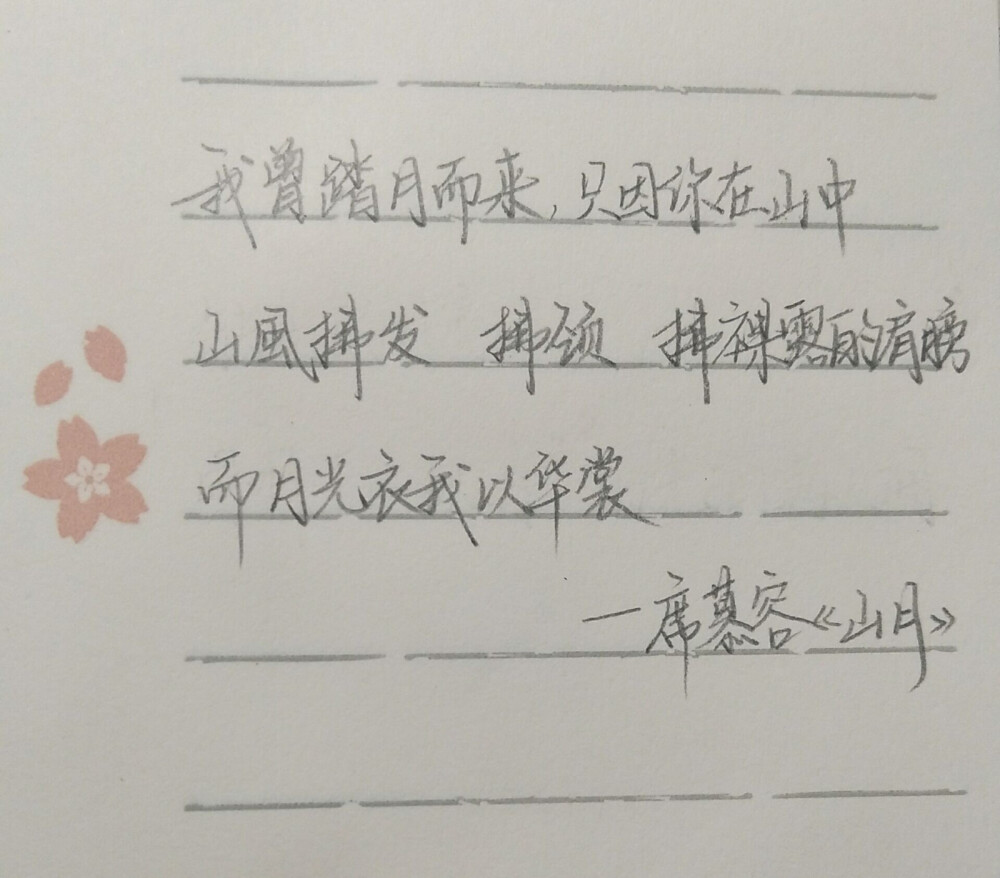 我曾踏月而来，只因你在山中
山風拂发 拂颈 拂裸露的肩膀
而月光衣我以华裳
—席慕容《山月》